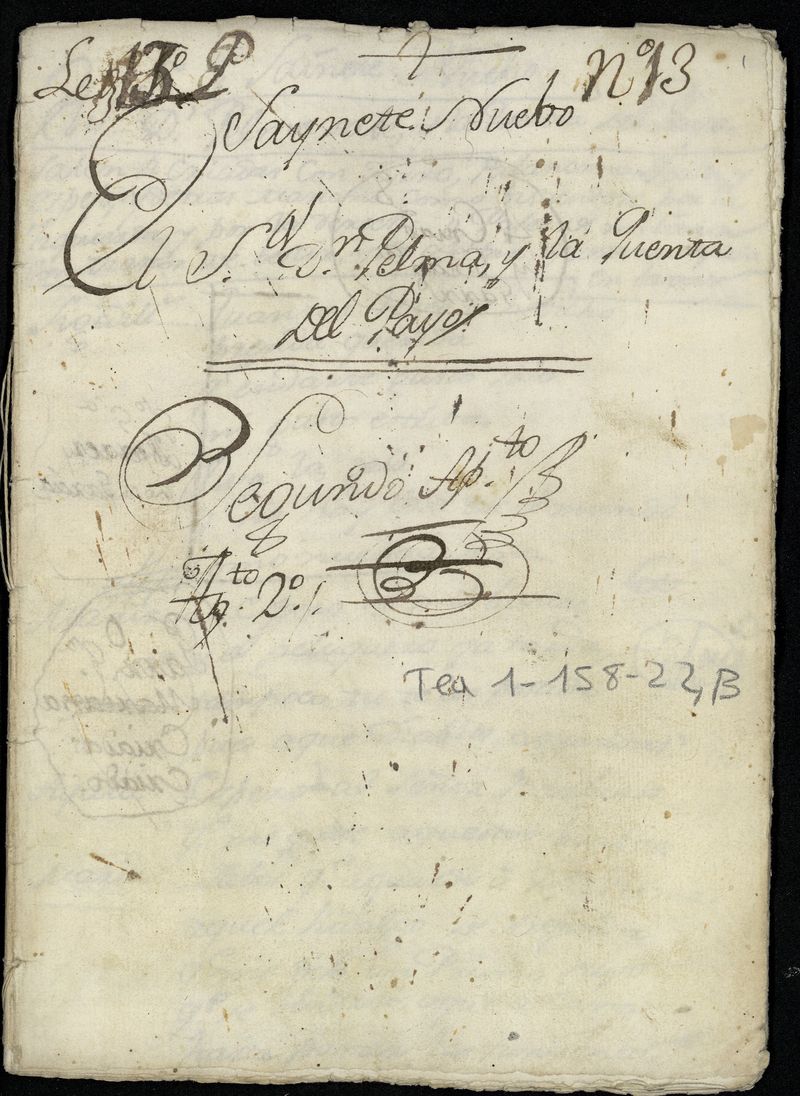 Nº 13
Saynete Nuebo
El S.r D.n Pelma, y la Quenta
Del Payo
Segundo Ap.to
Ap.to 2º
Tea 1-158-22, B